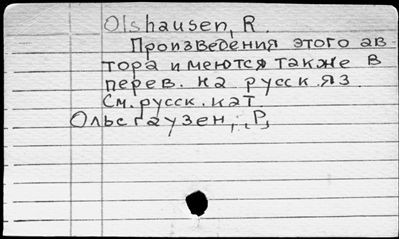 Olshausen, R.
Произведения этого ав-
тора имеются также в
перев. на русск. яз.
См. русск. кат.
Ольсгаузен, Р.